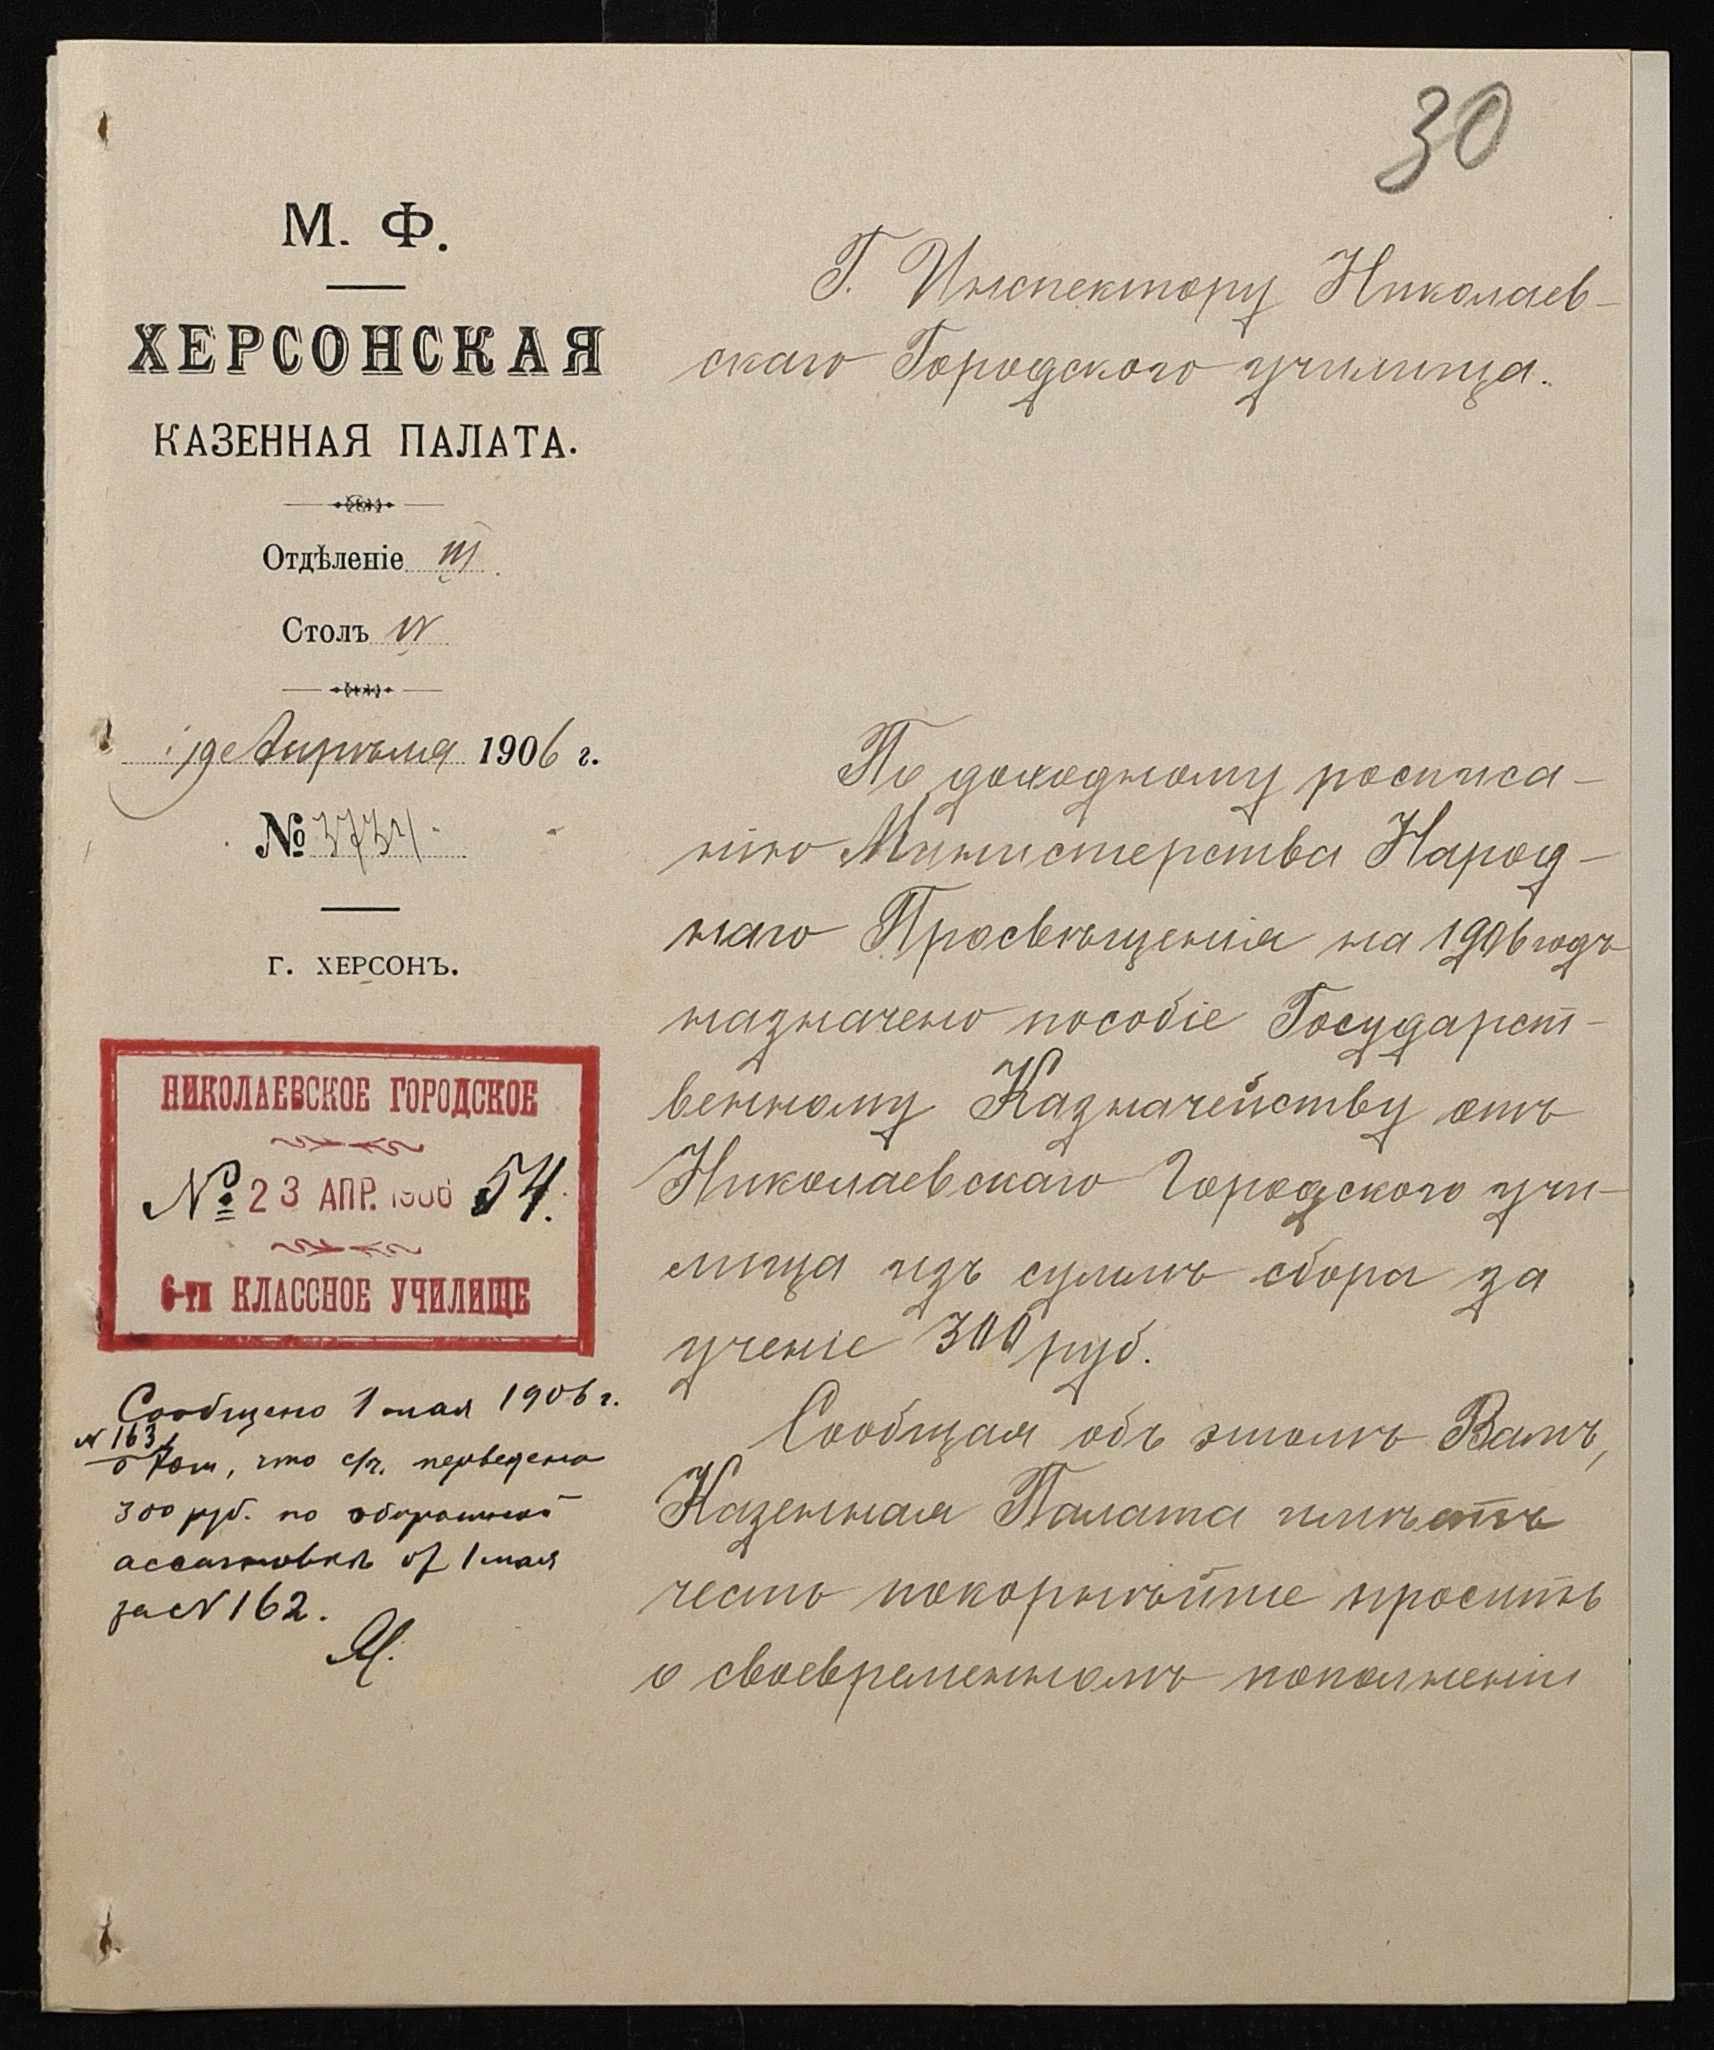 30
М. Ф.
ХЕРСОНСКАЯ
КАЗЕННАЯ ПАЛАТА.
Отдѣленіе III
Столъ IV
19 Апрѣля 1906 г.
№ 3734
Г. ХЕРСОНЪ.
НИКОЛАЕВСКОЕ ГОРОДСКОЕ
№ 23 АПР. 1906 54.
6-ти КЛАССНОЕ УЧИЛИЩЕ
Сообщено 1 мая 1906 г.
№ 163
о том, что с/ч. переведено
300 руб. по оборотной
ассигновкѣ от 1 мая
за № 162.
Г. Инспектору Николаев-
скаго Городского училища.
По доходному росписа-
нію Министерства Народ-
наго Просвѣщенія на 1906 годъ
назначено пособіе Государст-
венному Казначейству отъ
Николаевскаго Городского учи-
лища изъ суммъ сбора за
ученіе 300 руб.
Сообщая объ этомъ Вамъ,
Казенная Палата имѣетъ
честь покорнѣйше просить
о своевременномъ пополненіи